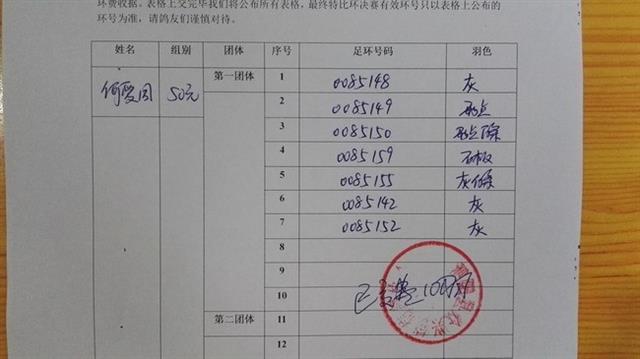 环费收据。表格上交完毕我们将公布所有表格，最终特比环决赛有效环号只以表格上公布的
环号为准，请鸽友们谨慎对待。
姓名 组别 团体 序号 足环号码 羽色
何爱国 50元 第一团体 1 0085148 灰
2 0085149 雨点
3 0085150 雨点条
4 0085159 石板
5 0085155 灰条
6 0085142 灰
7 0085152 灰
8
9
10 已交 10
第二团体 11
12